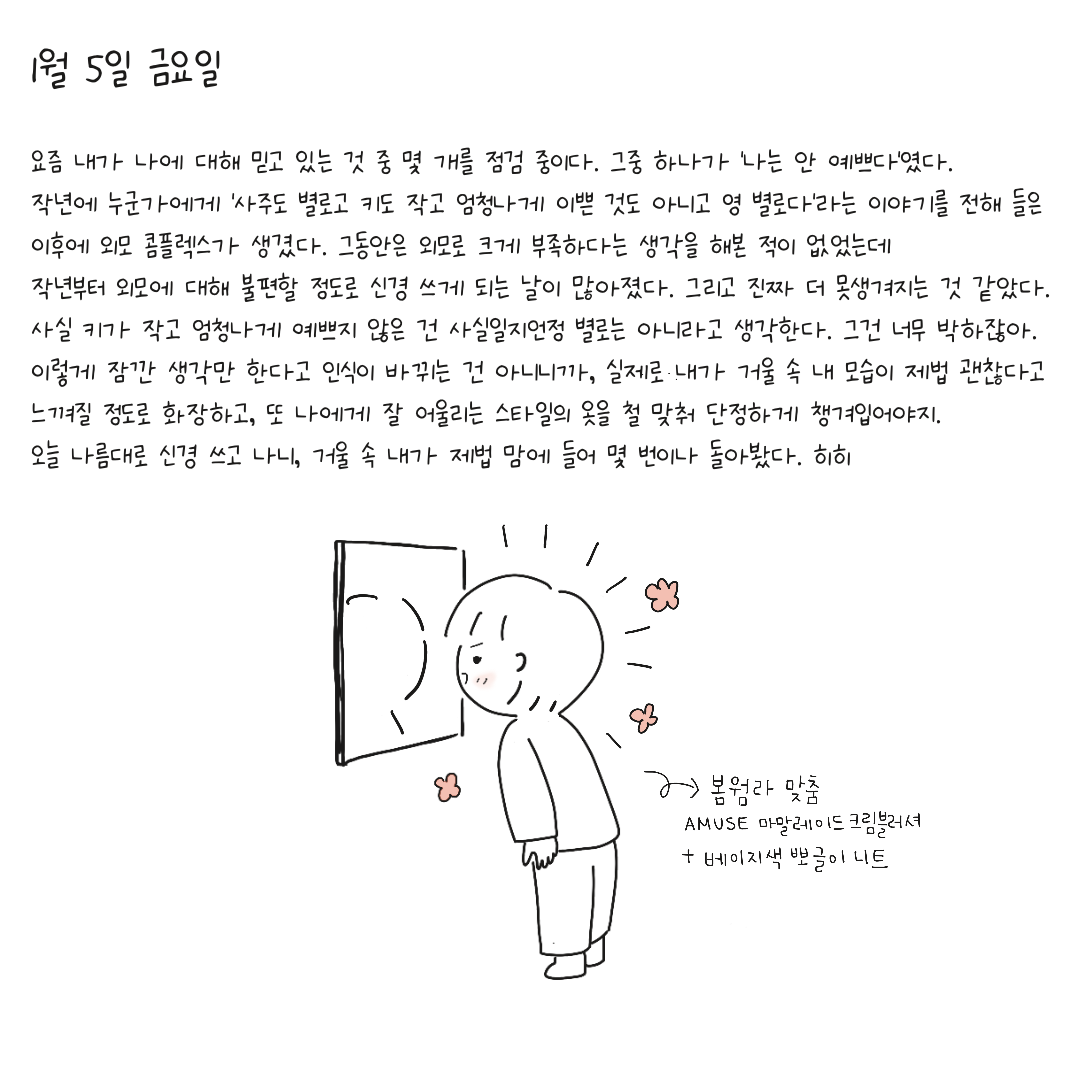 1월 5일 금요일
요즘 내가 나에 대해 믿고 있는 것 중 몇 개를 점검 중이다. 그중 하나가 '나는 안 예쁘다'였다.
작년에 누군가에게 '사주도 별로고 키도 작고 엄청나게 이쁜 것도 아니고 영 별로다'라는 이야기를 전해 들은
이후에 외모 콤플렉스가 생겼다. 그동안은 외모로 크게 부족하다는 생각을 해본 적이 없었는데
작년부터 외모에 대해 불편할 정도로 신경 쓰게 되는 날이 많아졌다. 그리고 진짜 더 못생겨지는 것 같았다.
사실 키가 작고 엄청나게 예쁘지 않은 건 사실일지언정 별로는 아니라고 생각한다. 그건 너무 박하잖아.
이렇게 잠깐 생각만 한다고 인식이 바뀌는 건 아니니까, 실제로 내가 거울 속 내 모습이 제법 괜찮다고
느껴질 정도로 화장하고, 또 나에게 잘 어울리는 스타일의 옷을 철 맞춰 단정하게 챙겨입어야지.
오늘 나름대로 신경 쓰고 나니, 거울 속 내가 제법 맘에 들어 몇 번이나 돌아봤다. 히히
봄웜라 맞춤
AMUSE 마말레이드 크림블러셔
+ 베이지색 뽀글이 니트